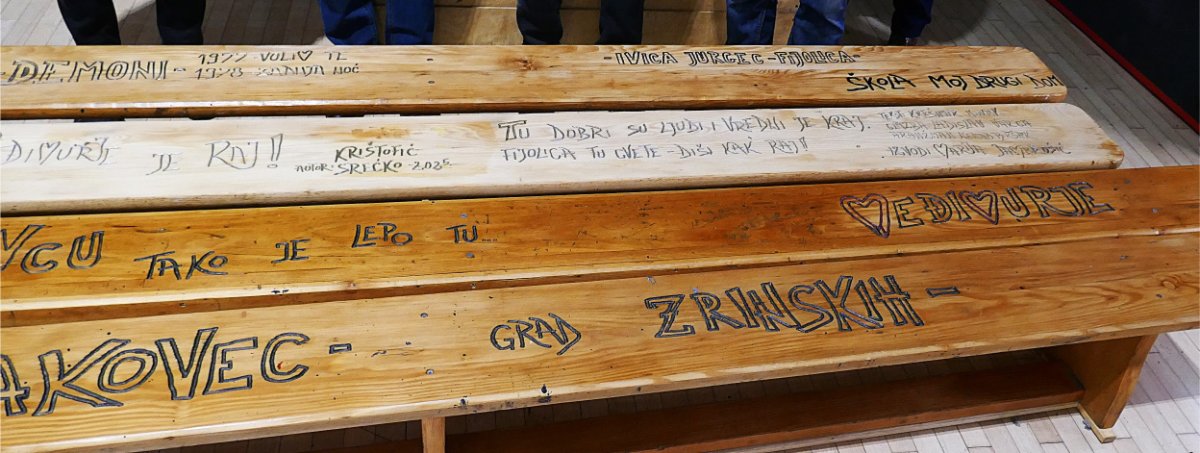 -DEMONI-
1977-VOLIO TE
1978-ZADNJA NOĆ
-IVICA JURGEC-FIJOLICA-
ŠKOLA MOJ DRUGI DOM
JE RAJ!
KRIŠTOFIĆ
autor: SREĆKO-2025.
TU DOBRI SU LJUDI I VREDNI JE KRAJ.
FIJOLICA TU CVETE-DIŠI KAK RAJ!!
TAKO JE LEPO TU...
MEĐIMURJE
AKOVEC--
GRAD ZRINSKIH-